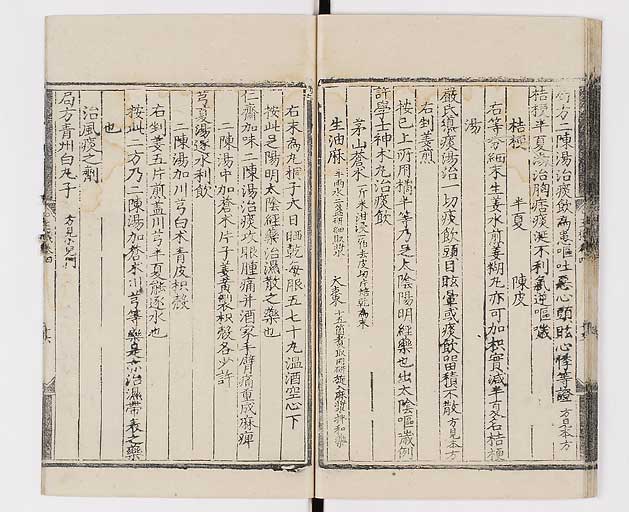 局方二陳湯治痰飲為患嘔吐惡心頭眩心悸等證 方見本方
桔梗半夏湯治胸痞痰涎不利氣逆嘔噦
桔梗 半夏 陳皮
右等分細末生姜水煎姜糊丸亦可加枳實減半夏名桔梗
湯
嚴氏導痰湯治一切痰飲頭目眩暈或痰飲留積不散 方見本方
右剉姜煎
按已上所用橘半等乃足太陰陽明經藥也出太陰嘔噦例
許學士神朮丸治痰飲
茅山蒼朮 一斤米泔浸一宿去皮切片焙乾為末
生油麻 半兩水二盞研細取漿 大棗 十五箇煮取肉研旋入麻漿拌和藥
右末為丸桐子大日晒乾每服五七十丸溫酒空心下
按此足陽明太陰經藥治濕散之藥也
仁齋加味二陳湯治痰攻眼腫痛并酒家手臂痛重或麻痺
二陳湯中加蒼朮片子姜黃製枳殼各少許
芎夏湯逐水利飲
二陳湯加川芎白朮青皮枳殼
右剉姜五片煎蓋川芎半夏能逐水也
按此二方乃二陳湯加蒼朮川芎等藥是亦治濕帶表之藥
也
治風痰之劑
局方青州白丸子 方見小兒門